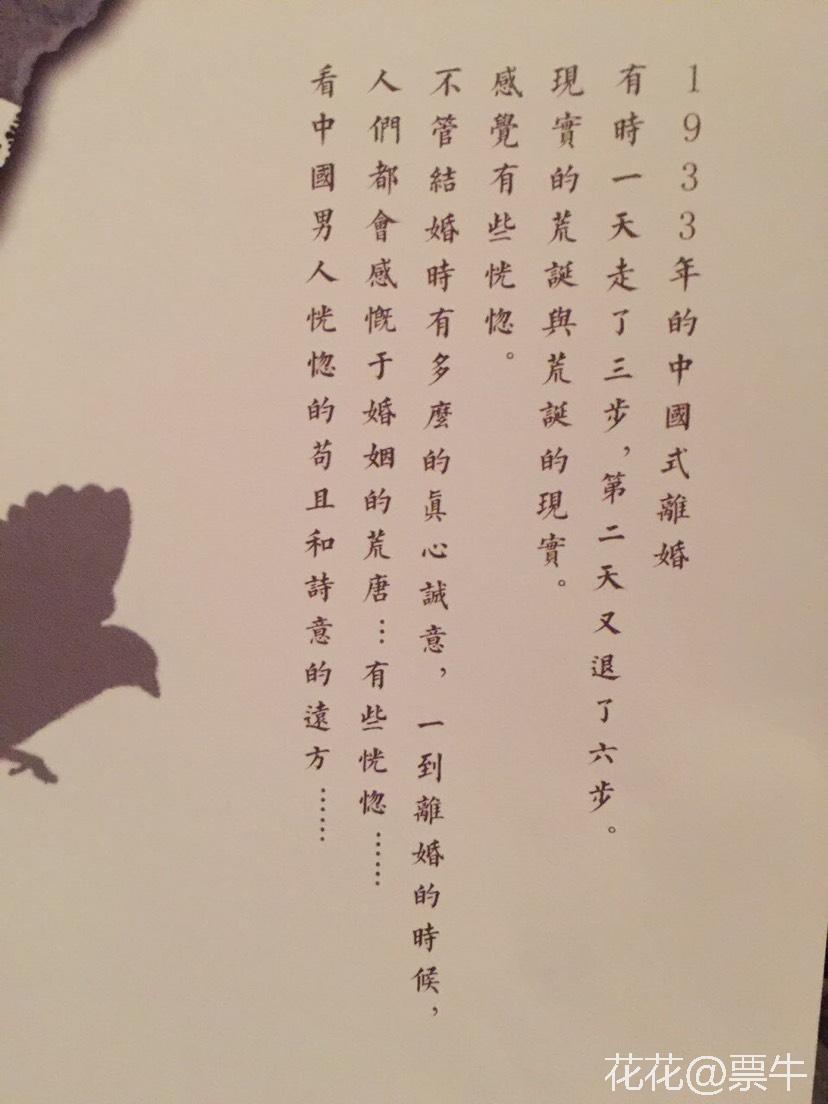 1933年的中國式離婚
有時一天走了三步，第二天又退了六步。
現實的荒誕與荒誕的現實。
感覺有些恍惚。
不管結婚時有多麼的眞心誠意，一到離婚的時候，
人們都會感慨于婚姻的荒唐…有些恍惚……
看中國男人恍惚的苟且和詩意的遠方……
花花@票牛